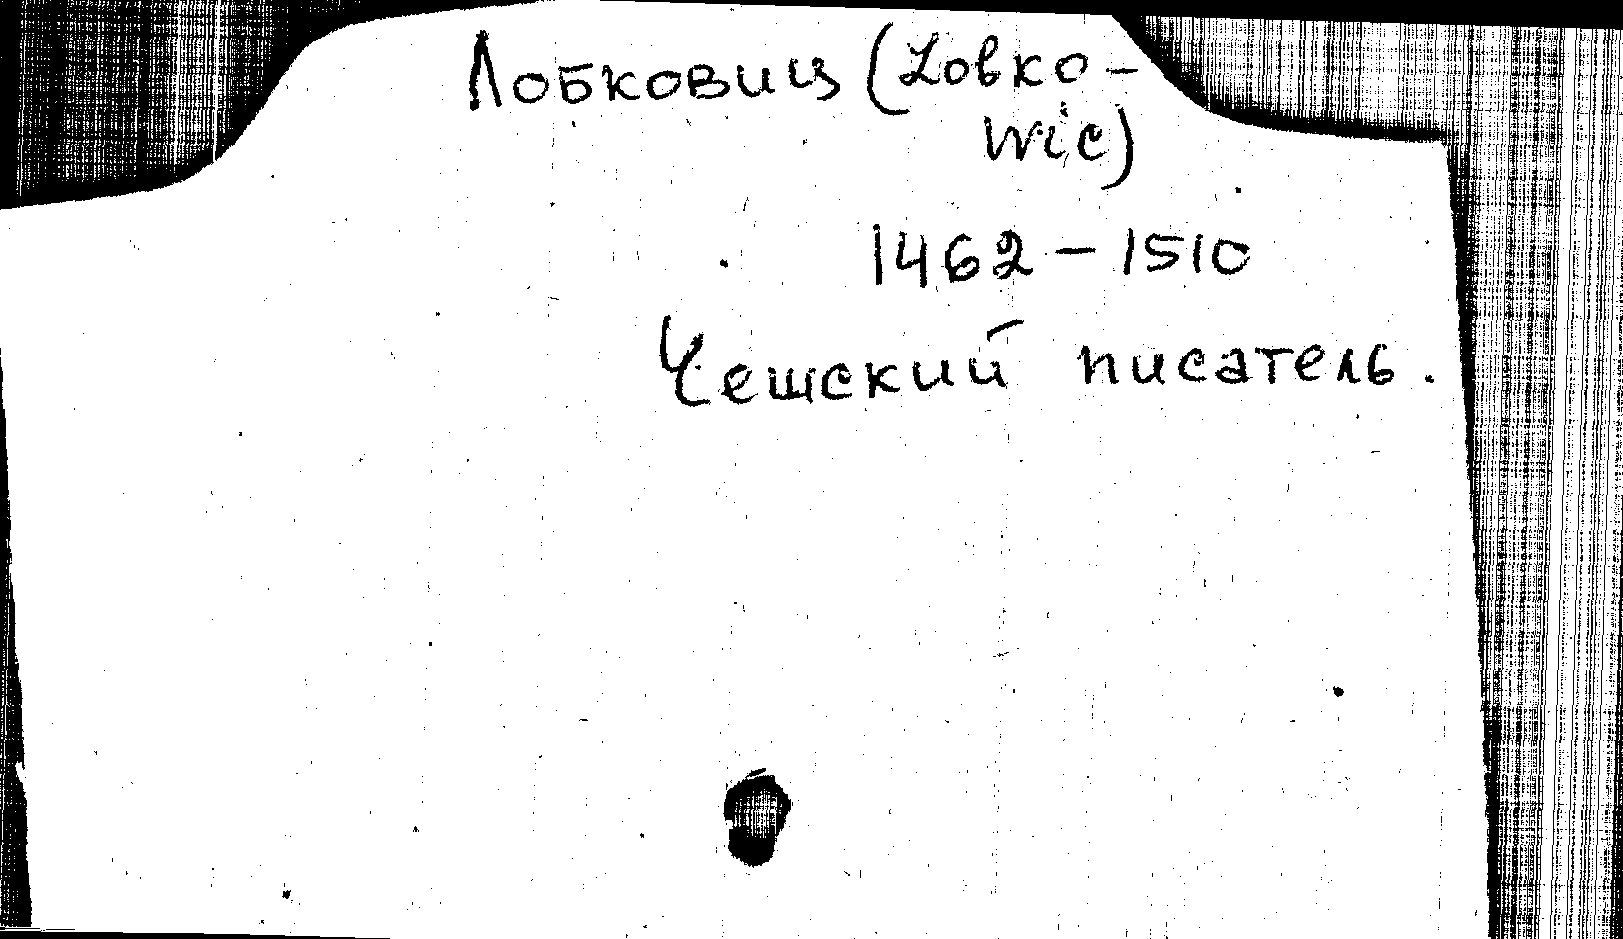 Лобковиц (Lobko-
wic)
1462 – 1510
Чешский писатель.